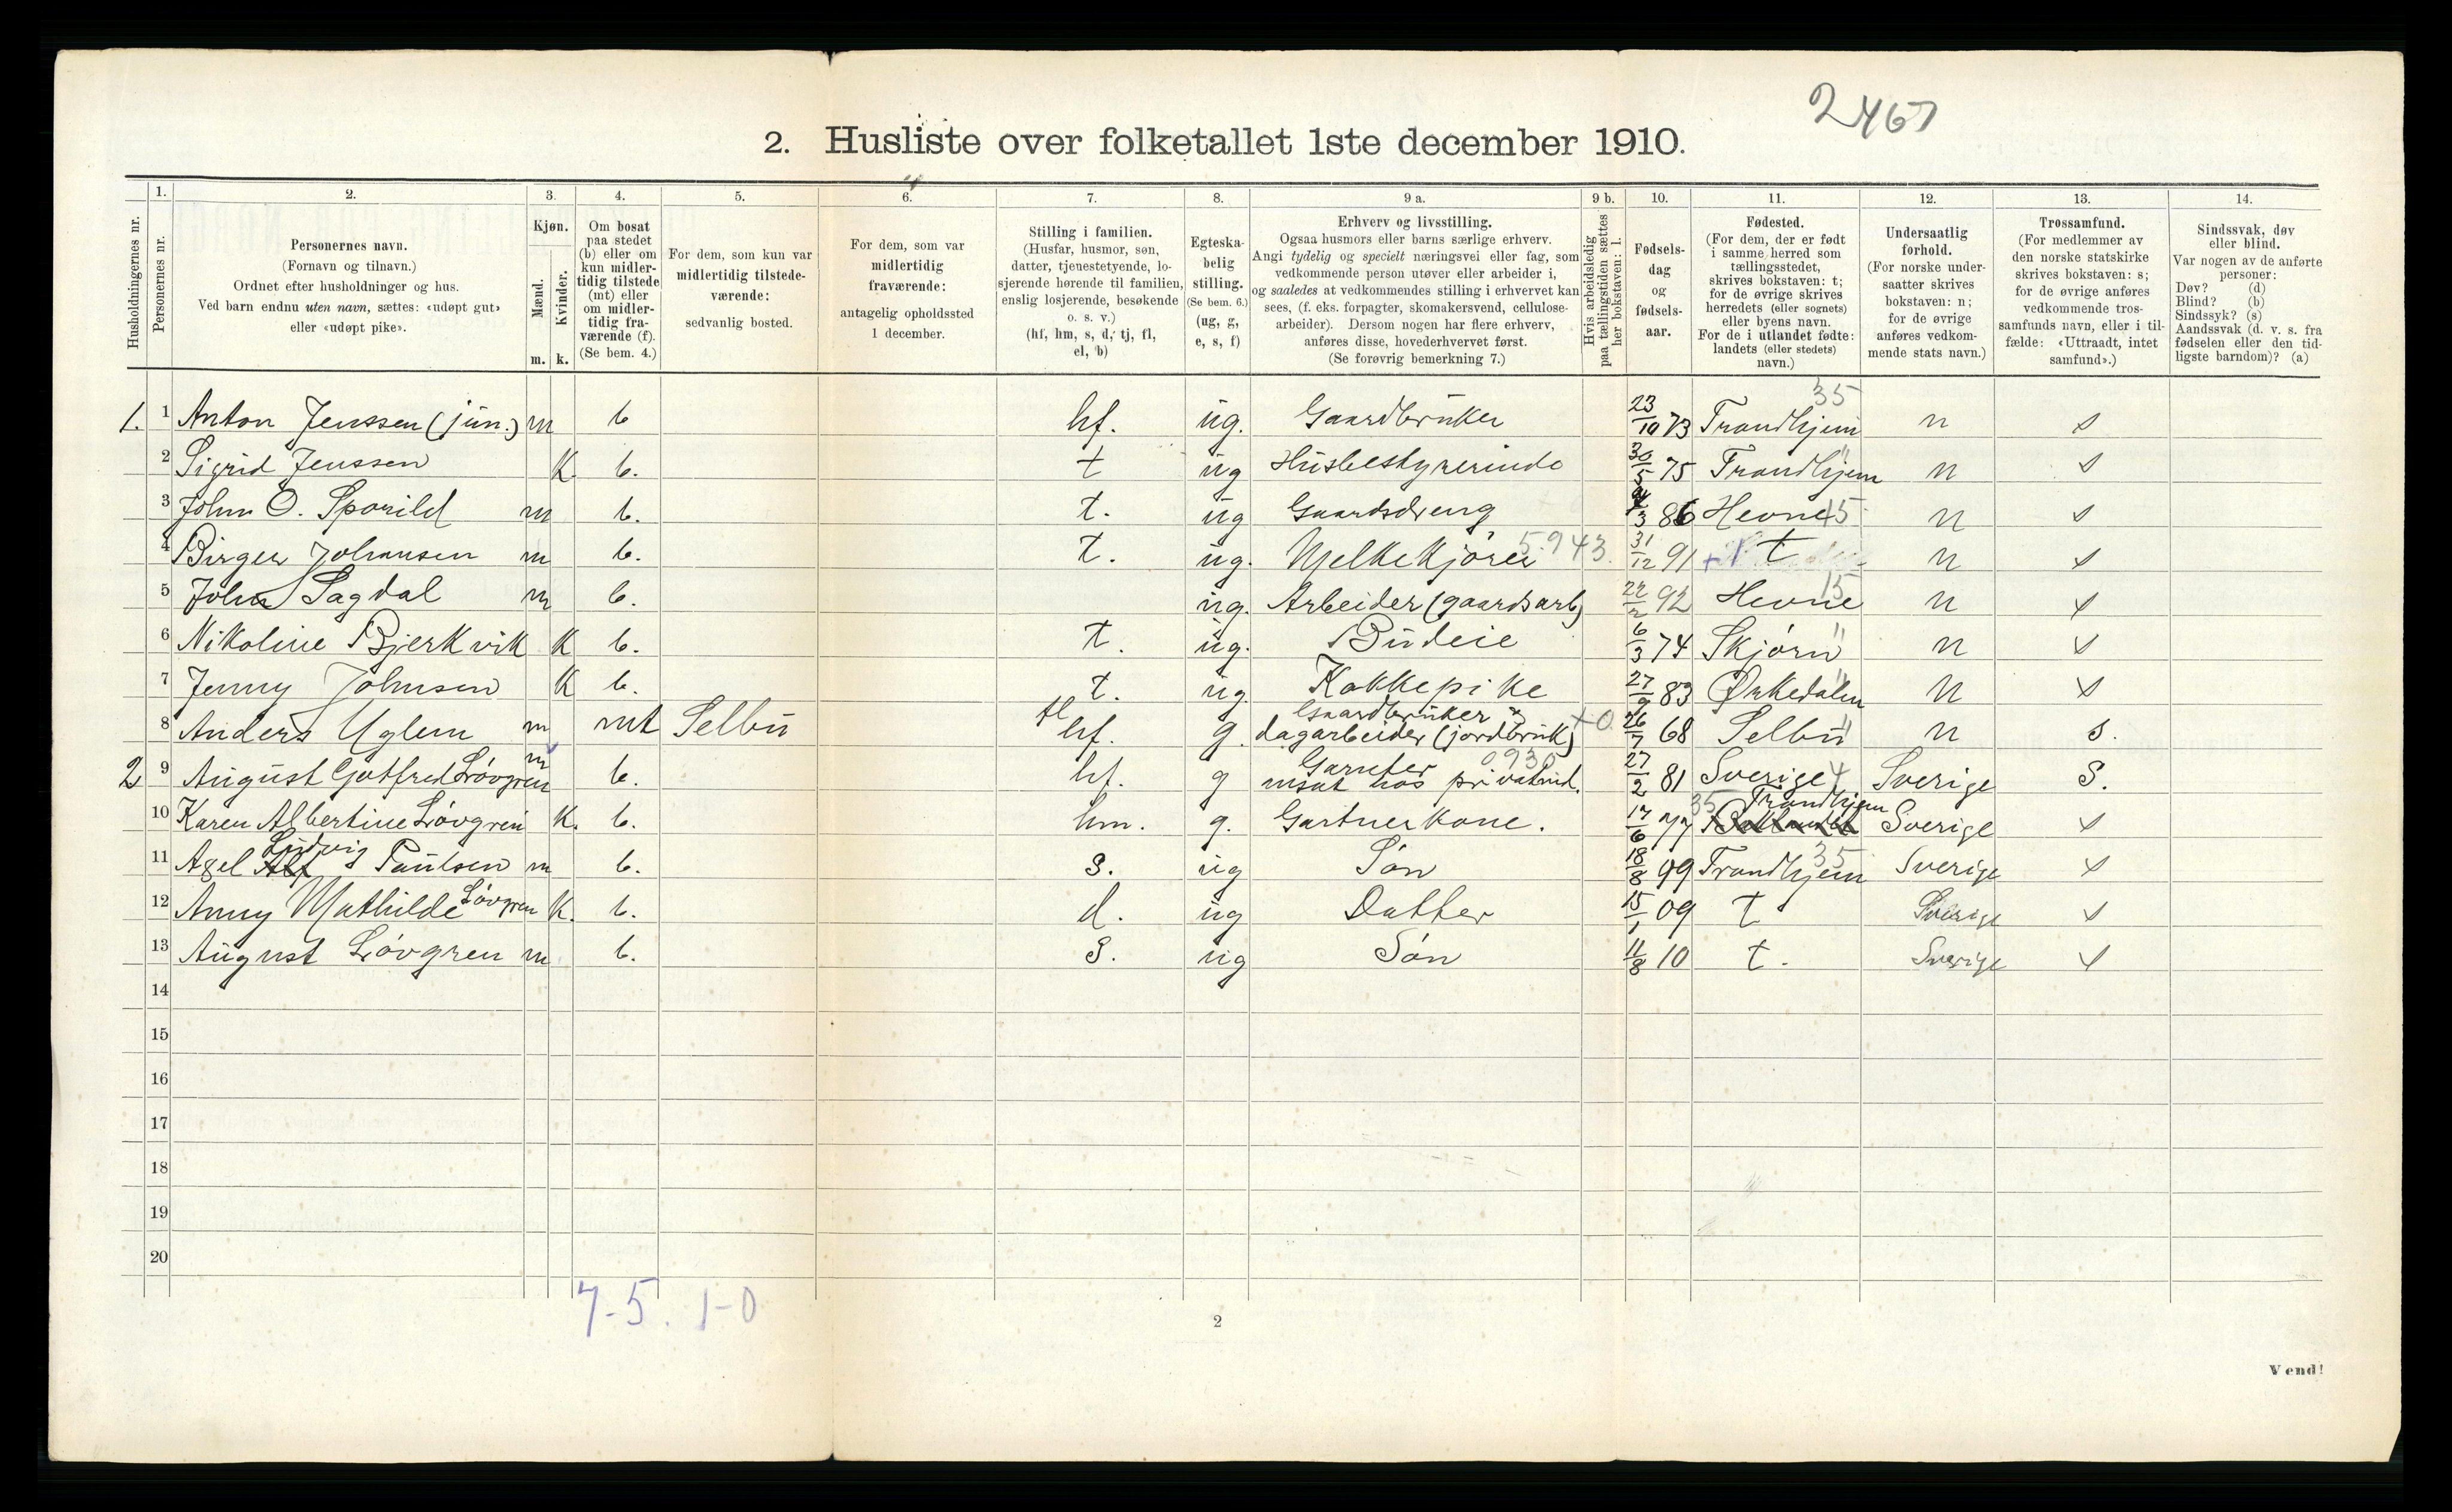 2467
2. Husliste over folketallet 1ste december 1910.
Husholdningernes nr.
1.
Personernes nr.
2.
Personernes navn.
(Fornavn og tilnavn.)
Ordnet efter husholdninger og hus.
Ved barn endnu uten navn, sættes: «udøpt gut»
eller «udøpt pike».
3.
Kjøn.
Mænd.
Kvinder.
m. k.
4.
Om bosat
paa stedet
(b) eller om
kun midler-
tidig tilstede
(mt) eller
om midler-
tidig fra-
værende (f).
(Se bem. 4.)
5.
For dem, som kun var
midlertidig tilstede-
værende:
sedvanlig bosted.
6.
For dem, som var
midlertidig
fraværende:
antagelig opholdssted
1 december.
7.
Stilling i familien.
(Husfar, husmor, søn,
datter, tjenestetyende, lo-
sjerende hørende til familien,
enslig losjerende, besøkende
o. s. v.)
(hf, hm, s, d, tj, fl,
el, b)
8.
Egteska-
belig
stilling.
(Se bem. 6.)
(ug, g,
e, s, f)
9 a.
Erhverv og livsstilling.
Ogsaa husmors eller barns særlige erhverv.
Angi tydelig og specielt næringsvei eller fag, som
vedkommende person utøver eller arbeider i,
og saaledes at vedkommendes stilling i erhvervet kan
sees, (f. eks. forpagter, skomakersvend, cellulose-
arbeider). Dersom nogen har flere erhverv,
anføres disse, hovederhvervet først.
(Se forøvrig bemerkning 7.)
9 b.
Hvis arbeidsledig
paa tællingstiden sættes
her bokstaven: l.
10.
Fødsels-
dag
og
fødsels-
aar.
11.
Fødested.
(For dem, der er født
i samme herred som
tællingsstedet,
skrives bokstaven: t;
for de øvrige skrives
herredets (eller sognets)
eller byens navn.
For de i utlandet fødte:
landets (eller stedets)
navn.)
12.
Undersaatlig
forhold.
(For norske under-
saatter skrives
bokstaven: n;
for de øvrige
anføres vedkom-
mende stats navn.)
13.
Trossamfund.
(For medlemmer av
den norske statskirke
skrives bokstaven: s;
for de øvrige anføres
vedkommende tros-
samfunds navn, eller i til-
fælde: «Uttraadt, intet
samfund».)
14.
Sindssvak, døv
eller blind.
Var nogen av de anførte
personer:
Døv? (d)
Blind? (b)
Sindssyk? (s)
Aandssvak (d. v. s. fra
fødselen eller den tid-
ligste barndom)? (a)
35
1. 1 Anton Jenssen (jun.) m b hf. ug. Gaardbruker 23/10 73 Trondhjem n s
2 Sigrid Jenssen K b. t ug Husbestyrerinde 30/5 75 Trondhjem " n s
3 John O. Sporild m b. t. ug Gaardsdreng /3 86 Hevne 15 n s
4 Birger Johansen m b. t. ug. Melkekjører 5.943. 31/12 91 + t n s
5 John Sagdal m b. ug. Arbeider (gaardsarb) 22/2 92 Hevne 15 n s
6 Nikoline Bjerkvik K b. t. ug. Budeie 6/3 74 Skjørn " n s
7 Jenny Johnsen K b. t. ug. Kokkepike 27/9 83 Ørkedalen " n s
8 Anders Uglem m mt Selbu fl hf. g. Gaardbruker * dagarbeider (jordbruk) +0. 26/7 68 Selbu " n s.
2 9 August Gotfred Lövgren m b. hf. g Gartner 0930 ansat hos privatmd. 27/2 81 Sverige 4 Sverige S.
10 Karen Albertine Lövgren K. b. hm. g. Gartnerkone. 17/6 77 35 Trondhjem Sverige s
11 Axel Alf Ludvig Paulsen m b. s. ug Søn 18/8 99 Trondhjem 35 Sverige s
12 Anny Mathilde Lövgren K. b. d. ug Datter 15/1 09 t Sverige s
13 August Lövgren m b. s. ug Søn 11/8 10 t. Sverige s
14
15
16
17
18
19
20
7-5. 1-0
2
Vend!